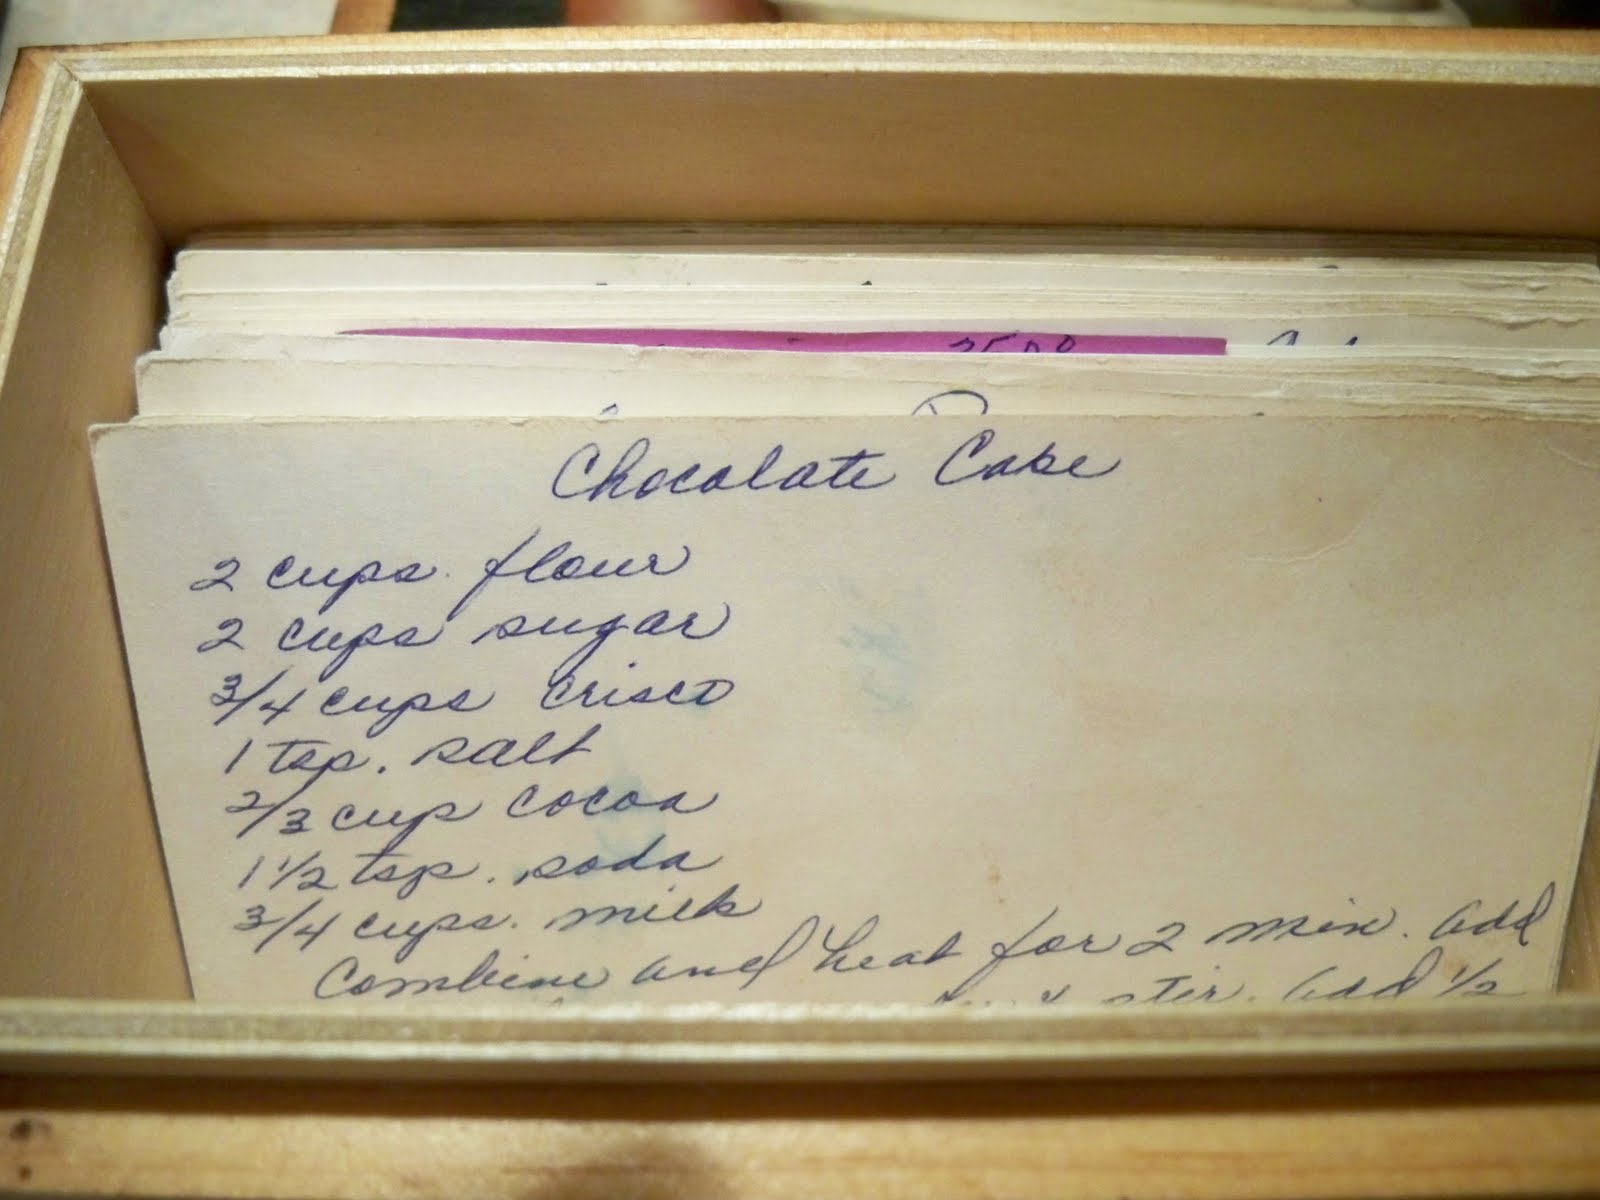 Chocolate Cake
2 cups flour
2 cups sugar
3/4 cups crisco
1 tsp. salt
2/3 cup cocoa
1 1/2 tsp. soda
3/4 cups. milk
Combine and heat for 2 min. Add
stir. Add 1/2